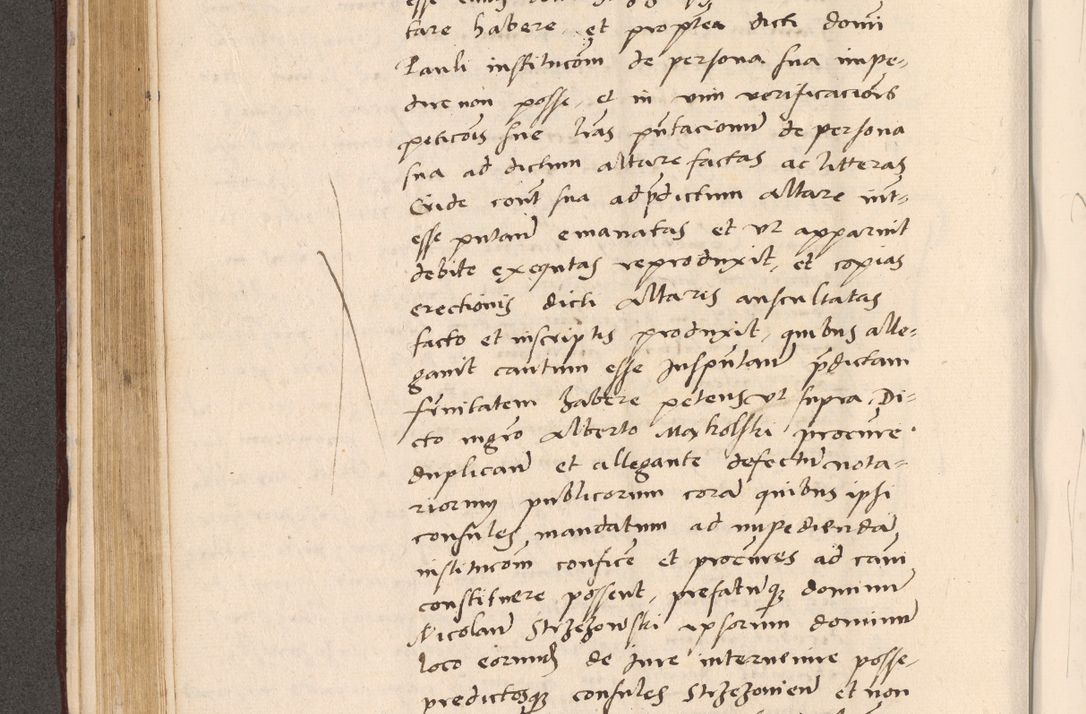 tare habere, et proptea dicti domi
Pauli institucom de persona sua impe-
dire non posse, et in vim verificacionis
peticois sue lras pntacionu de persona
sua ad dictum altare factas ac litteras
cont sua ad pdictum altare int-
esse emanatas et vt apparuit
debite exequtas reproduxit, et copias
erectionis dicti altaris auscultatas
facto et inscriptis produxit, quibus alle-
gauit cautum esse pdictam
habere petens vt supra Di-
cto mgro Alberto procure
duplican et allegante defectu nota-
riorum publicorum cora quibus ipsi
consules mandatum ad impedienda
institucom confice et procures ad cam
constituere possent, prefatumq dominum
Nicolau Strzezowski ipsorum dominum
loco eorumd de Jure interuenire posse,
predictosq consules Strzezouien et non